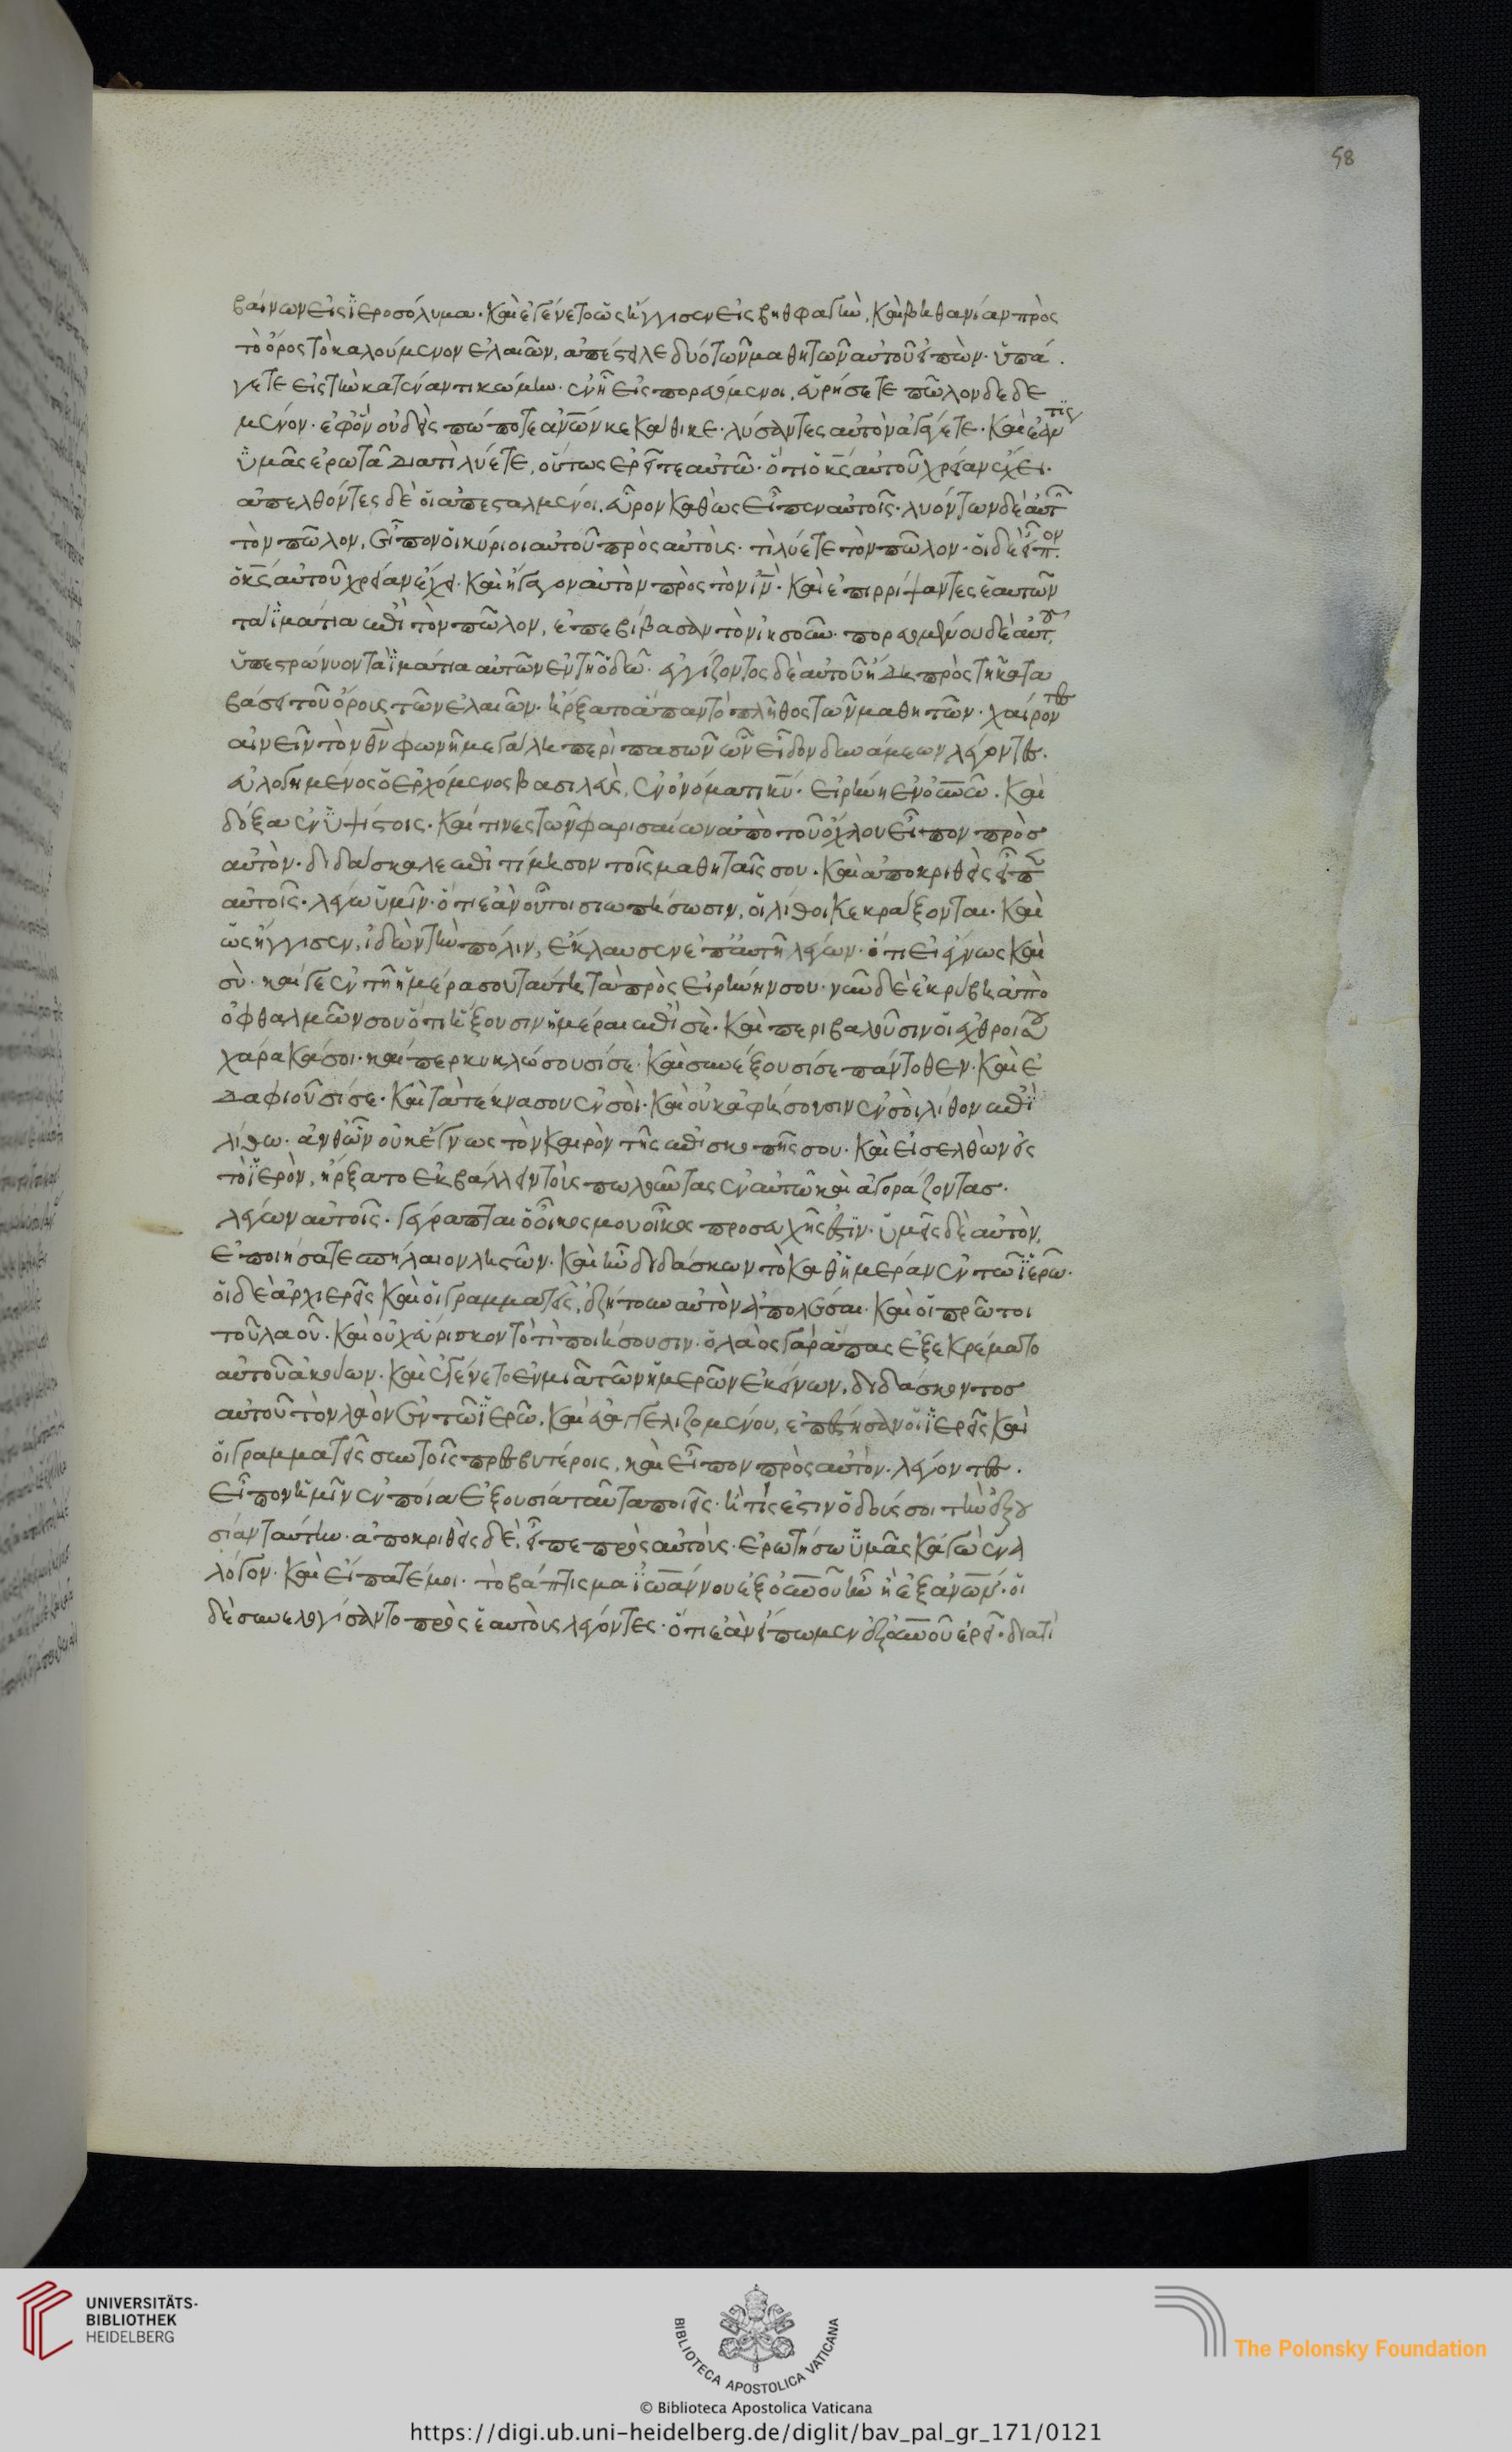 58
βαίνων εἰς ἱεροσόλυμα. καὶ ἐγένετο ὡς ἤγγισεν εἰς βηθφαγὴν, καὶ βηθανίαν πρὸς
τὸ ὄρος τὸ καλούμενον ἐλαιῶν, ἀπέστειλε δυό τῶν μαθητῶν αὐτοῦ εἰπὼν. ὑπά
γετε εἰς τὴν κατέναντι κώμην. ἐν ἧ εἰσπορευόμενοι, εὑρήσετε πῶλον δεδε
μένον. ἐφ ὃν οὐδεὶς πώποτε ἀν̅ω̅ν κεκάθικε. λύσαντες αὐτὸν ἀγάγετε. καὶ ἐάν τις
ὑμᾶς ἐρωτᾶ διατὶ λύετε, οὕτως ἐρεῖτε αὐτῶ. ὅτι ὁ κ̅ς̅ αὐτοῦ χρείαν ἔχει.
ἀπελθόντες δὲ οἱ ἀπεσταλμένοι, εὗρον καθὼς εἶπεν αὐτοῖς. λυόντων δὲ αὐτῶν
τὸν πῶλον, εἶπον οἱ κύριοι αὐτοῦ πρὸς αὐτοὺς. τὶ λύετε τὸν πῶλον. οἱ δὲ εἶπον.
ὁ κ̅ς̅ αὐτοῦ χρείαν ἔχει. καὶ ἤγαγον αὐτὸν πρὸς τὸν ι̅ν̅. καὶ ἐπιρρίψαντες ἑαυτῶν
τὰ ἱμάτια ἐπὶ τὸν πῶλον, ἐπεβίβασαν τὸν ἰησοῦν. πορευομένου δὲ αὐτοῦ,
ὑπεστρώνυον τὰ ἱμάτια αὐτῶν ἐν τῆ ὁδῶ. ἐγγίζοντος δὲ αὐτοῦ ἤδη πρὸς τῆ κατα
βάσει τοῦ ὄρους τῶν ἐλαιῶν. ἤρξατο ἅπαν τὸ πλῆθος τῶν μαθητῶν. χαίροντες
αἰνεῖν τὸν θ̅ν̅ φωνῆ μεγάλη περὶ πασῶν ὧν εἶδον δυνάμεων λέγοντες.
εὐλογημένος ὁ ἐρχόμενος βασιλεὺς, ἐν ὀνόματι κ̅υ̅. εἰρήνη ἐν ο̅υ̅ν̅ω̅. καὶ
δόξα ἐν ὑψίστοις. καί τινες τῶν φαρισαίων ἀπὸ τοῦ ὄχλου εἶπον πρὸς
αὐτὸν. διδάσκαλε ἐπιτίμησον τοῖς μαθηταῖς σου. καὶ ἀποκριθεὶς εἶπεν
αὐτοῖς. λέγω ὑμῖν. ὅτι ἐὰν οὗτοι σιωπήσωσιν, οἱ λίθοι κεκράξονται. καὶ
ὡς ἤγγισεν, ἰδὼν τὴν πόλιν, ἔκλαυσεν ἐπ αὐτῆ λέγων. ὅτι εἰ ἔγνως καὶ
σὺ. καί γε ἐν τῆ ἡμέρα σου ταύτη τὰ πρὸς εἰρήνην σου. νῦν δὲ ἐκρύβη ἀπὸ
ὀφθαλμῶν σου ὅτι ἥξουσιν ἡμέραι ἐπὶ σὲ. καὶ περιβαλοῦσιν οἱ ἐχθροί σου
χάρακά σοι. καί περικυκλώσουσί σε. καὶ συνέξουσί σε πάντοθεν. καὶ ἐ
δαφιοῦσί σε. καὶ τὰ τέκνα σου ἐν σοὶ. καὶ οὐκ ἀφήσουσιν ἐν σοὶ λίθον ἐπὶ
λίθω. ἀνθ ὧν οὐκ ἔγνως τὸν καιρὸν τῆς ἐπισκοπῆς σου. καὶ εἰσελθὼν εἰς
τὸ ἱερὸν, ἤρξατο ἐκβάλλειν τοὺς πωλοῦντας ἐν αὐτῶ καὶ ἀγοράζοντας.
λέγων αὐτοῖς. γέγραπται ὁ οἶκος μου οἶκος προσευχῆς ἐστὶν. ὑμεῖς δὲ αὐτὸν,
ἐποιήσατε σπήλαιον ληστῶν. καὶ ἦν διδάσκων τὸ καθ ἡμέραν ἐν τῶ ἱερῶ.
οἱ δὲ ἀρχιερεῖς καὶ οἱ γραμματεῖς, ἐζήτουν αὐτὸν ἀπολέσαι. καὶ οἱ πρῶτοι
τοῦ λαοῦ. καὶ οὐχ εὕρισκον τὸ τὶ ποιήσουσιν. ὁ λαὸς γὰρ ἅπας ἐξεκρέματο
αὐτοῦ ἀκούων. καὶ ἐγένετο ἐν μιᾶ τῶν ἡμερῶν ἐκείνων, διδάσκοντος
αὐτοῦ τὸν λαὸν ἐν τῶ ἱερῶ, καὶ εὐαγγελιζομένου, ἐπέστησαν οἱ ἱερεῖς καὶ
οἱ γραμματεῖς σὺν τοῖς πρεσβυτέροις, καὶ εἶπον πρὸς αὐτὸν. λέγοντες.
εἶπον ἡμῖν ἐν ποία ἐξουσία ταῦτα ποιεῖς. ἢ τίς ἐστιν ὁ δούς σοι τὴν ἐξου
σίαν ταύτην. ἀποκριθεὶς δὲ, εἶπε πρὸς αὐτοὺς. ἐρωτήσω ὑμᾶς κἀγὼ ἕνα
λόγον. καὶ εἴπατέ μοι. τὸ βάπτισμα ἰω̅άννου ἐξ ο̅υ̅ν̅οῦ ἦν ἢ ἐξ ἀν̅ω̅ν̅. οἱ
δὲ συνελογίσαντο πρὸς ἑαυτοὺς λέγοντες. ὅτι ἐὰν εἴπωμεν ἐξ ο̅υ̅ν̅οῦ ἐρεῖ. διατὶ
UNIVERSITÄTS-
BIBLIOTHEK
HEIDELBERG
BIBLIOTECA APOSTOLICA VATICANA
The Polonsky Foundation
© Biblioteca Apostolica Vaticana
https://digi.ub.uni-heidelberg.de/diglit/bav_pal_gr_171/0121